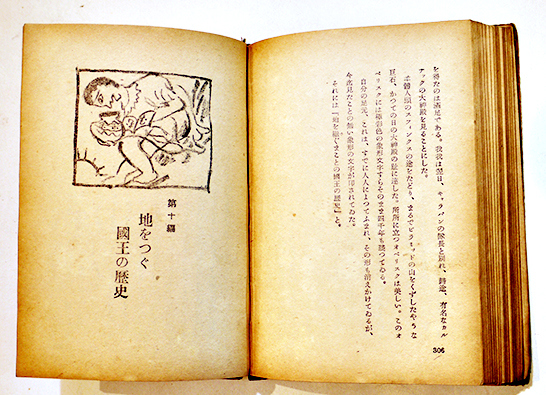 を得たのは満足である。我我は翌日、キャラバンの隊長と別れ、時途、有名なカル
ナックの大神殿を見ることにした。
羊體人頭のスフィンクスの途をたどり、まるでピラミッドの山をくずしたやうな
巨石、かつての日の大神殿の址に達した。所所に立つオベリスクは美しい。このオ
ベリスクには極彩色の象形文字すらそのまま四千年も經つてゐる。
自分の足元、これは、すでに人人によつてふまれ、その形も消えかけてゐるが、
今迄見たことの無い象形の文字が印されてゐた。
それには『地を繼ぐまことの國王の歷史』と。
306
第十編
地をつぐ
國王の歷史